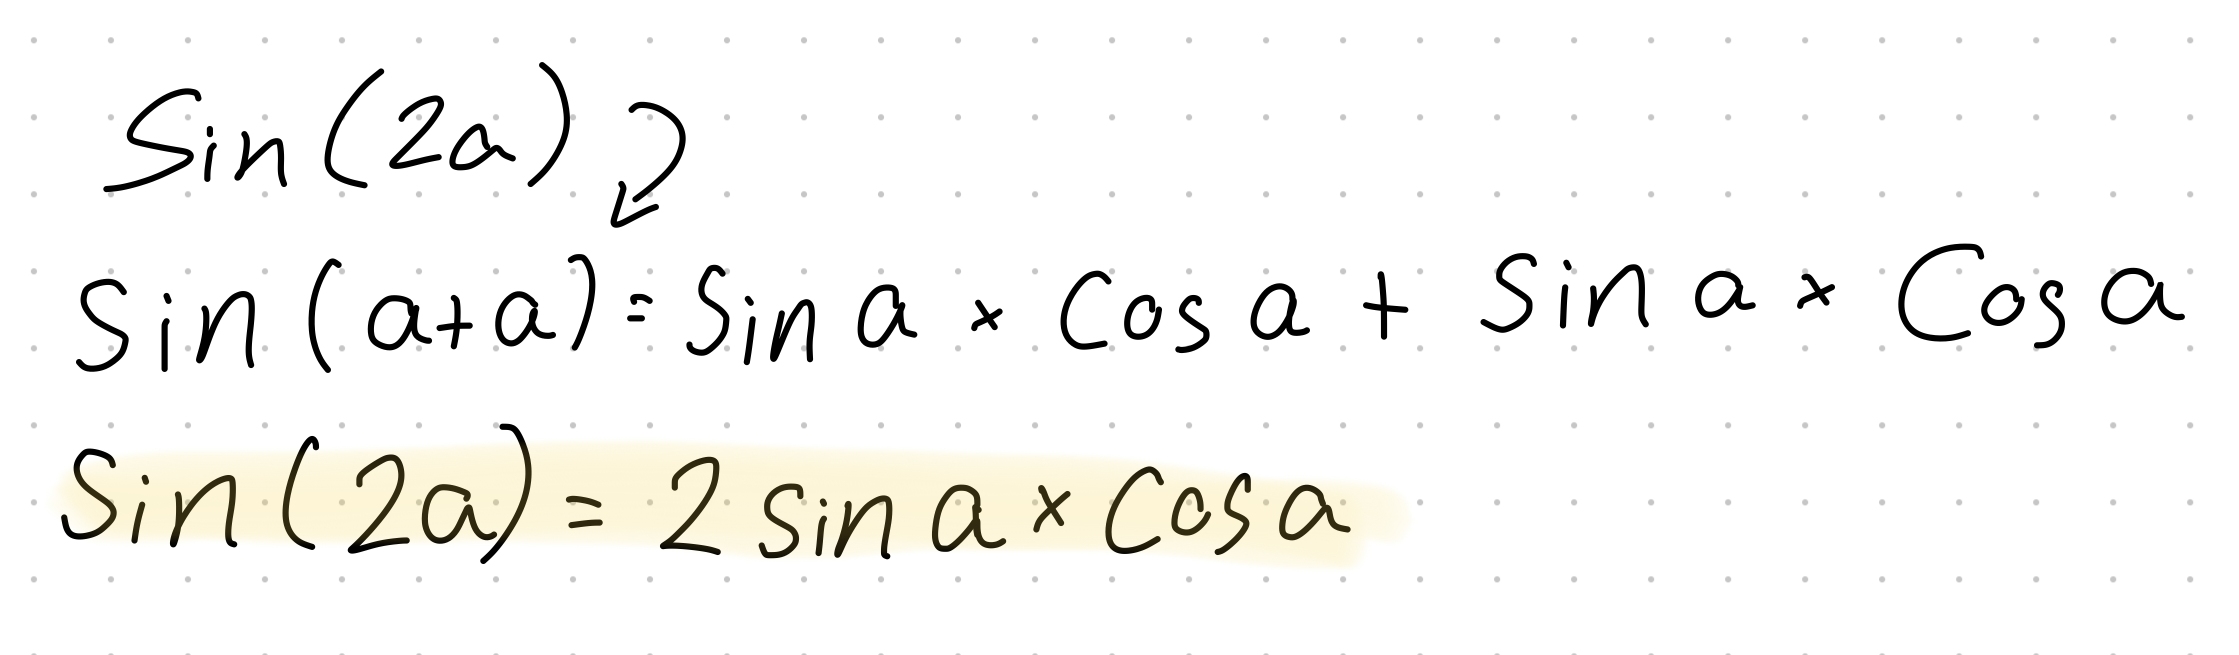 Sin(2a)
Sin(a+a)=Sin a × Cos a + Sin a × Cos a
Sin(2a) = 2 sin a × Cos a